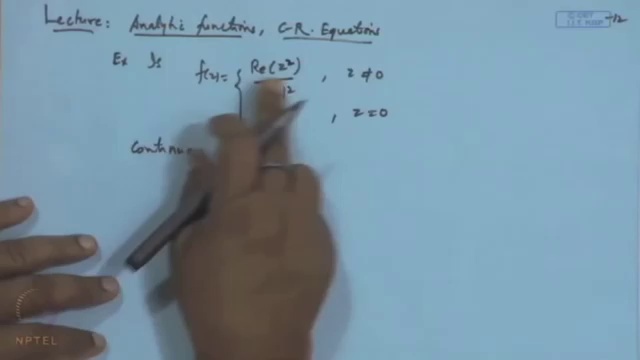 Lecture: Analytic functions, C-R. Equations
Ex Is f(z) = { Re(z²) , z ≠ 0
, z = 0
NPTEL